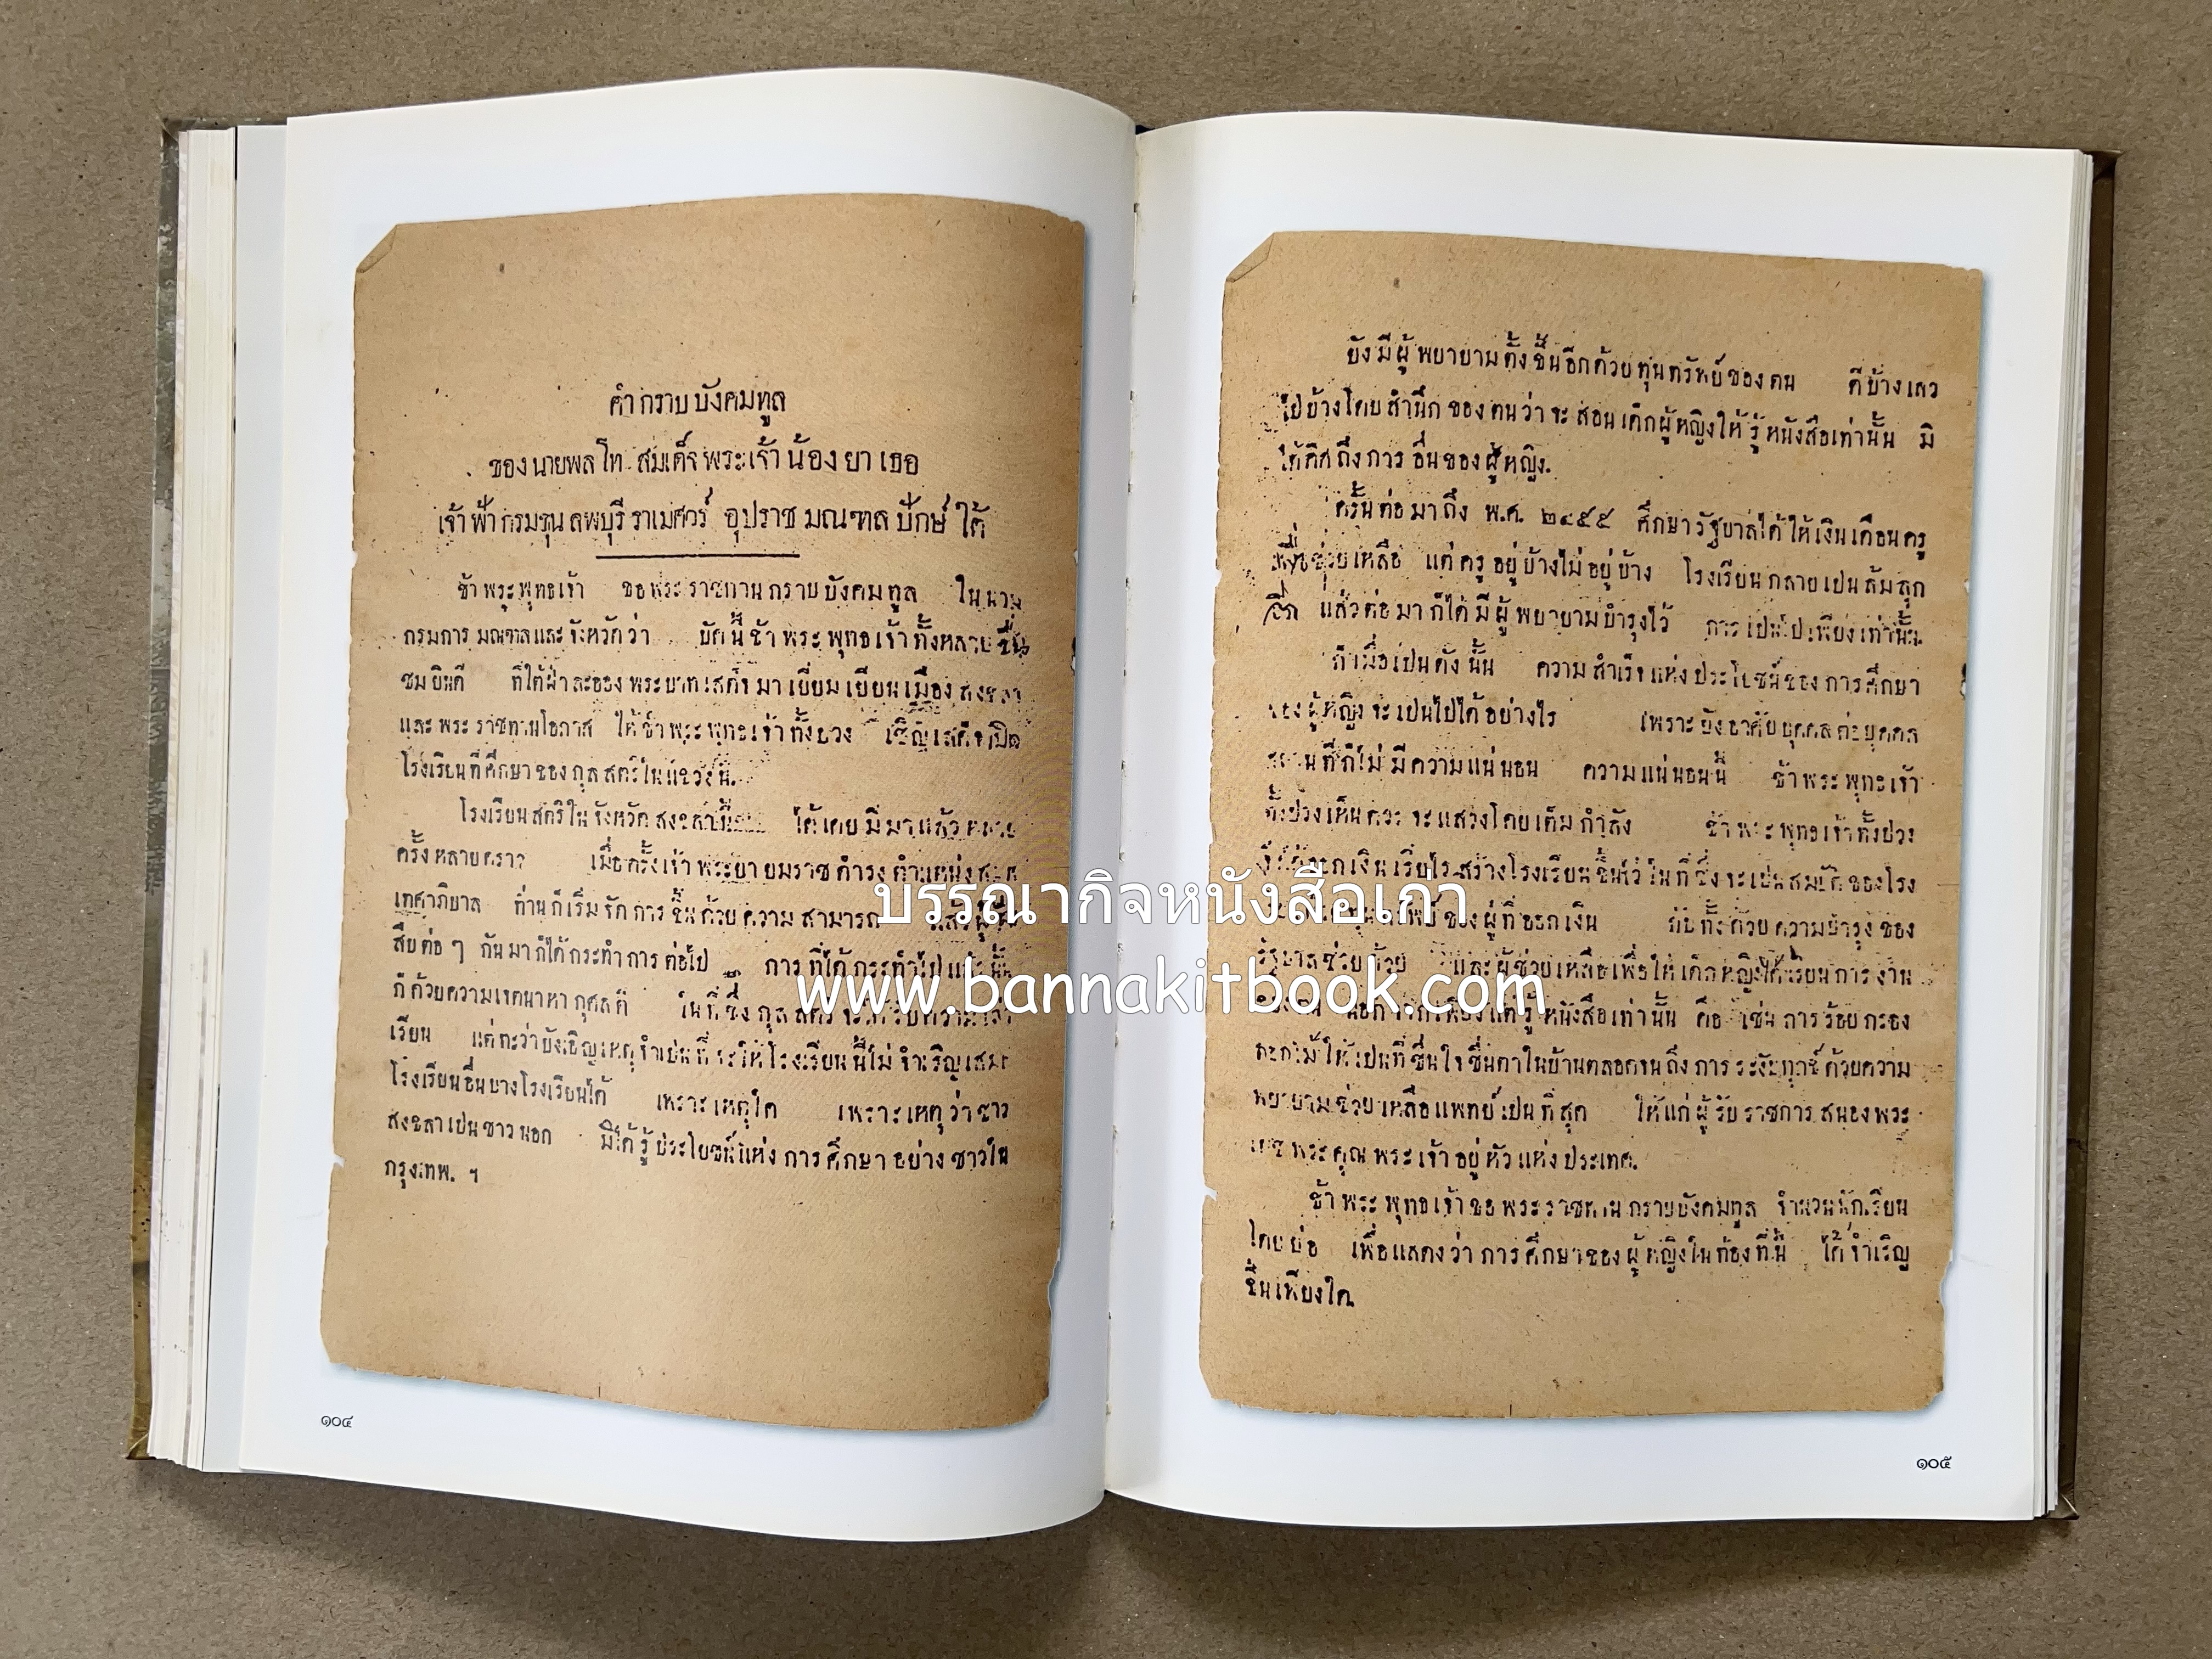 คำกราบบังคมทูล
ของนายพลโท สมเด็จพระเจ้าน้องยาเธอ
เจ้าฟ้ากรมขุนลพบุรีราเมศวร์ อุปราชมณฑลปักษ์ใต้
ข้าพระพุทธเจ้า ขอพระราชทานกราบบังคมทูล ในนาม
กรมการมณฑลและจังหวัดว่า บัดนี้ข้าพระพุทธเจ้าทั้งหลายชื่น
ชมยินดี ที่ใต้ฝ่าละอองพระบาทเสด็จมาเยี่ยมเยียนเมืองสงขลา
และพระราชทานโอกาส ให้ข้าพระพุทธเจ้าทั้งปวง เชิญเสด็จเปิด
โรงเรียนที่ศึกษาของกุลสตรีในแขวงนี้.
โรงเรียนสตรีในจังหวัดสงขลานี้ ได้เคยมีมาแล้วหลาย
ครั้งหลายคราว เมื่อครั้งเจ้าพระยายมราชดำรงตำแหน่งสมุห
เทศาภิบาล ท่านก็เริ่มจัดการขึ้นด้วยความสามารถ แล้วผู้ที่
สืบต่อๆ กันมาก็ได้กระทำการต่อไป การที่ได้กระทำไปแล้วนั้น
ก็ด้วยความเจตนาหากุศลดี ในที่ซึ่งกุลสตรีจะได้รับความเล่า
เรียน แต่ทะว่าบังเอิญเหตุจำเป็นที่จะให้โรงเรียนนี้ไม่จำเริญเสมอ
โรงเรียนอื่นบางโรงเรียนได้ เพราะเหตุใด เพราะเหตุว่าชาว
สงขลาเป็นชาวนอก มิได้รู้ประโยชน์แห่งการศึกษาอย่างชาวใน
กรุงเทพ. ฯ
๑๐๔
ยังมีผู้พยายามตั้งขึ้นอีกด้วยทุนทรัพย์ของตน ดีบ้างเลว
ไปบ้างโดยสำนึกของตนว่าจะสอนเด็กผู้หญิงให้รู้หนังสือเท่านั้น มิ
ได้คิดถึงการอื่นของผู้หญิง.
ครั้นต่อมาถึง พ.ศ. ๒๔๕๕ ศึกษารัฐบาลได้ให้เงินเดือนครู
เพื่อช่วยเหลือ แต่ครูอยู่บ้างไม่อยู่บ้าง โรงเรียนกลายเป็นล้มลุก
อีก แล้วต่อมาก็ได้มีผู้พยายามบำรุงไว้ การเป็นไปเพียงเท่านั้น.
ก็เมื่อเป็นดังนั้น ความสำเร็จแห่งประโยชน์ของการศึกษา
ของผู้หญิงจะเป็นไปได้อย่างไร เพราะยังอาศัยบุคคลต่อบุคคล
สถานที่ก็ไม่มีความแน่นอน ความแน่นอนนี้ ข้าพระพุทธเจ้า
ทั้งปวงเห็นควรจะแสวงโดยเต็มกำลัง ข้าพระพุทธเจ้าทั้งปวง
จึงได้ออกเงินเรี่ยไรสร้างโรงเรียนขึ้นไว้ในที่ซึ่งจะเป็นสมบัติของโรง
ของผู้ที่ออกเงิน กับทั้งด้วยความบำรุงของ
รัฐบาลช่วยด้วย และผู้ช่วยเหลือเพื่อให้เด็กหญิงได้เรียนการงาน
นอกจากเพียงแต่รู้หนังสือเท่านั้น คือ เช่นการร้อยกรอง
ดอกไม้ให้เป็นที่ชื่นใจชื่นตาในบ้านตลอดจนถึงการระงับทุกข์ด้วยความ
พยายามช่วยเหลือแพทย์เป็นที่สุด ให้แก่ผู้รับราชการสนองพระ
เดชพระคุณพระเจ้าอยู่หัวแห่งประเทศ.
ข้าพระพุทธเจ้าขอพระราชทานกราบบังคมทูล จำนวนนักเรียน
โดยย่อ เพื่อแสดงว่าการศึกษาของผู้หญิงในท้องที่นี้ ได้จำเริญ
ขึ้นเพียงใด.
๑๐๕
บรรณากิจหนังสือเก่า
www.bannakitbook.com